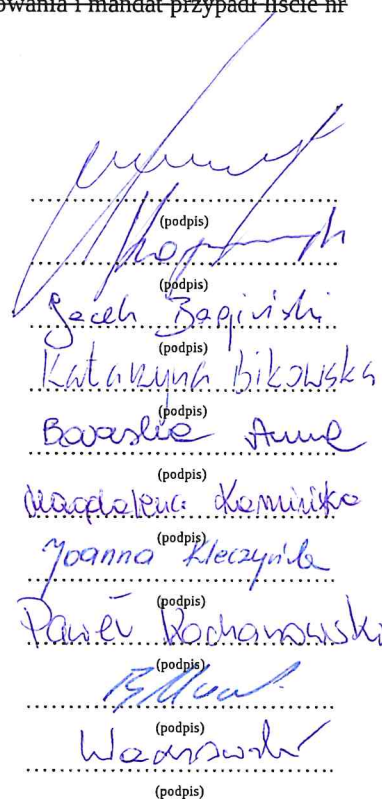 owania i mandat przypadł liście nr
(podpis)
(podpis)
Jacek Bagiński
(podpis)
Katarzyna Bikowska
(podpis)
Anna
(podpis)
Magdalena Kamińska
(podpis)
Joanna Kleczyńska
(podpis)
Paweł Kochanowski
(podpis)
(podpis)
(podpis)